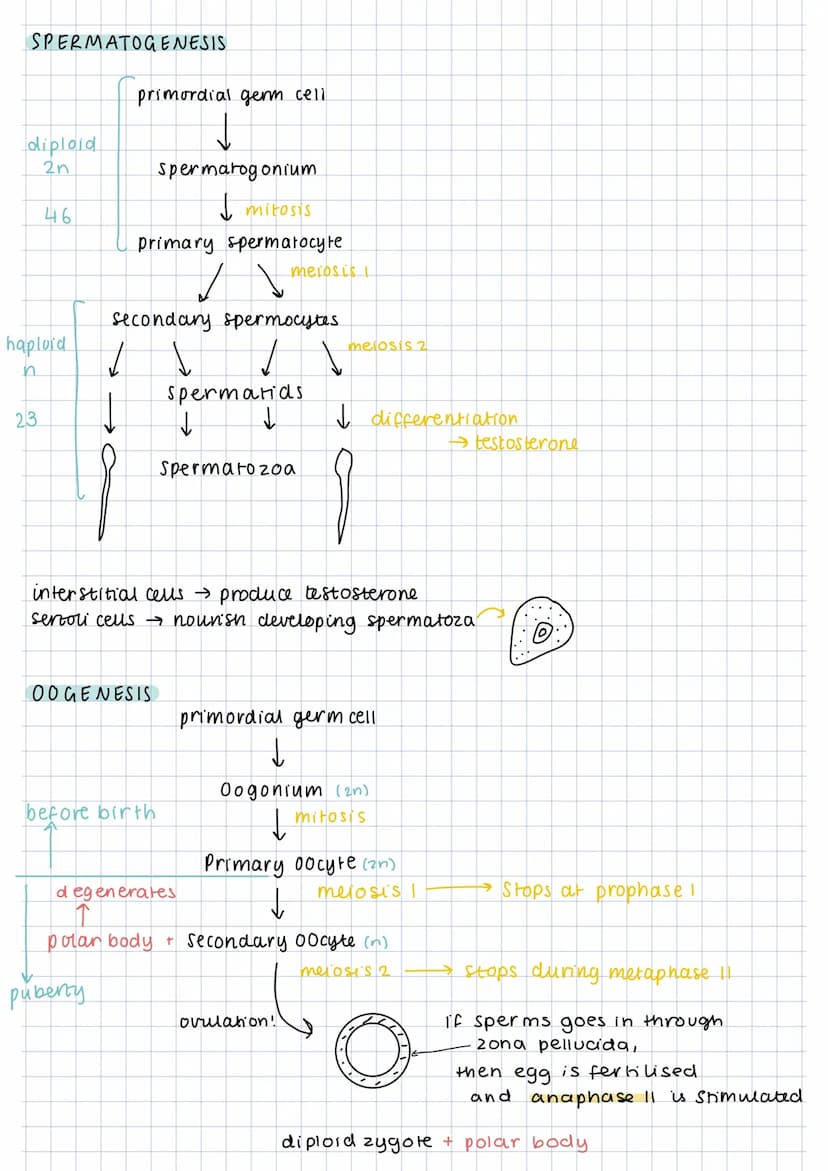 SPERMATOGENESIS
primordial germ cell
diploid
2n
spermatogonium
46
mitosis
primary spermatocyte
meiosis 1
secondary spermocytes
haploid
n
meiosis 2
spermatids
23
differentiation
→ testosterone
spermatozoa
interstitial cells → produce testosterone
sertoli cells → nourish developing spermatoza
OOGENESIS
primordial germ cell
Oogonium (2n)
before birth
mitosis
Primary oocyte (2n)
degenerates
meiosis 1 → Stops at prophase 1
polar body + Secondary Oocyte (n)
meiosis 2 → stops during metaphase II
puberty
ovulation!
if sperms goes in through
zona pellucida,
then egg is fertilised
and anaphase II is stimulated
diploid zygote + polar body